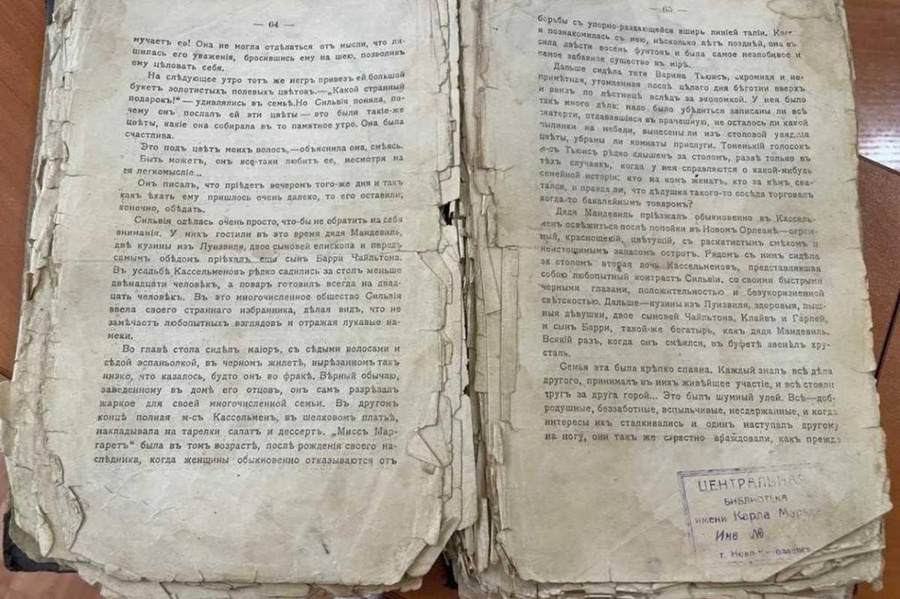 — 64 —
мучаетъ ее! Она не могла отдѣлаться отъ мысли, что ли-
шилась его уваженія, бросившись ему на шею, позволивъ
ему цѣловать себя.
На слѣдующее утро тотъ же негръ привезъ ей большой
букетъ золотистыхъ полевыхъ цвѣтовъ.—„Какой странный
подарокъ!“ — удивлялись въ семьѣ. Но Сильвія поняла, по-
чему онъ послалъ ей эти цвѣты — это были такіе-же
цвѣты, какіе она собирала въ то памятное утро. Она была
счастлива.
„Это подъ цвѣтъ моихъ волосъ,—объяснила она, смѣясь.
Быть можетъ, онъ все-таки любитъ ее, несмотря на
ея легкомысліе...
Онъ писалъ, что пріѣдетъ вечеромъ того-же дня и такъ
какъ ѣхать ему пришлось очень далеко, то его оставили,
конечно, обѣдать.
Сильвія одѣлась очень просто, что-бы не обратить на себя
вниманія. У нихъ гостили въ это время дядя Мандевиль,
двѣ кузины изъ Луизвиля, двое сыновей епископа и передъ
самымъ обѣдомъ пріѣхалъ еще сынъ Барри Чайльтона.
Въ усадьбѣ Кассельменовъ рѣдко садились за столъ меньше
двѣнадцати человѣкъ, а поваръ готовилъ всегда на двад-
цать человѣкъ. Въ это многочисленное общество Сильвія
ввела своего страннаго избранника, дѣлая видъ, что не
замѣчаетъ любопытныхъ взглядовъ и отражая лукавые на-
меки.
Во главѣ стола сидѣлъ маіоръ, съ сѣдыми волосами и
сѣдой эспаньолкой, въ черномъ жилетѣ, вырѣзанномъ такъ
низко, что казалось, будто онъ во фракѣ. Вѣрный обычаю,
заведенному въ домѣ его отцовъ, онъ самъ разрѣзалъ
жаркое для своей многочисленной семьи. Въ другомъ
концѣ полная м-съ Кассельменъ, въ шелковомъ платьѣ,
накладывала на тарелки салатъ и дессертъ. „Миссъ Мар-
гаретъ“ была въ томъ возрастѣ, послѣ рожденія своего на-
слѣдника, когда женщины обыкновенно отказываются отъ
— 65 —
борьбы съ упорно-раздающейся вширь линіей таліи. Когда
я познакомилась съ нею, нѣсколько лѣтъ позднѣй, она вѣ-
сила двѣсти восемь фунтовъ и была самое незлобивое и
самое забавное существо въ мірѣ.
Дальше сидѣла тетя Варина Тьюисъ, скромная и не-
примѣтная, утомленная послѣ цѣлаго дня бѣготни вверхъ
и внизъ по лѣстницѣ вслѣдъ за экономкой. У нея было
такъ много дѣла: надо было убѣдиться записаны ли всѣ
скатерти, отдававшіяся въ прачешную, не осталось ли какой
пылинки на мебели, вынесены ли изъ столовой увядшіе
цвѣты, убраны ли комнаты прислуги. Тоненькій голосокъ
м-съ Тьюисъ рѣдко слышенъ за столомъ, развѣ только въ
тѣхъ случаяхъ, когда у нея справляются о какой-нибудь
семейной исторіи: кто на комъ женатъ, кто за кѣмъ сва-
тался, и правда ли, что дѣдушка такого-то сосѣда торговалъ
когда-то бакалейнымъ товаромъ?
Дядя Мандевиль пріѣзжалъ обыкновенно въ Кассель-
менъ освѣжиться послѣ попойки въ Новомъ Орлеанѣ—огром-
ный, краснощекій, цвѣтущій, съ раскатистымъ смѣхомъ и
неистощимымъ запасомъ остротъ. Рядомъ съ нимъ сидѣла
за столомъ вторая дочь Кассельменовъ, представлявшая
собою любопытный контрастъ Сильвіи, со своими быстрыми
черными глазами, положительностью и безукоризненной
свѣтскостью. Дальше—кузины изъ Луизвиля, здоровыя, пыш-
ныя дѣвушки, двое сыновей Чайльтона, Клайвъ и Гарлей,
и сынъ Барри, такой-же богатырь, какъ дядя Мандевиль.
Всякій разъ, когда онъ смѣялся, въ буфетѣ звенѣлъ хру-
сталь.
Семья эта была крѣпко спаяна. Каждый зналъ всѣ дѣла
другого, принималъ въ нихъ живѣйшее участіе, и всѣ стояли
другъ за друга горой... Это былъ шумный улей. Всѣ—доб-
родушные, беззаботные, вспыльчивые, несдержанные, и когда
интересы ихъ сталкивались и одинъ наступалъ другому
на ногу, они такъ же страстно враждовали, какъ прежде
ЦЕНТРАЛЬНАЯ
БИБЛИОТЕКА
имени Карла Маркса
Инв №
г.